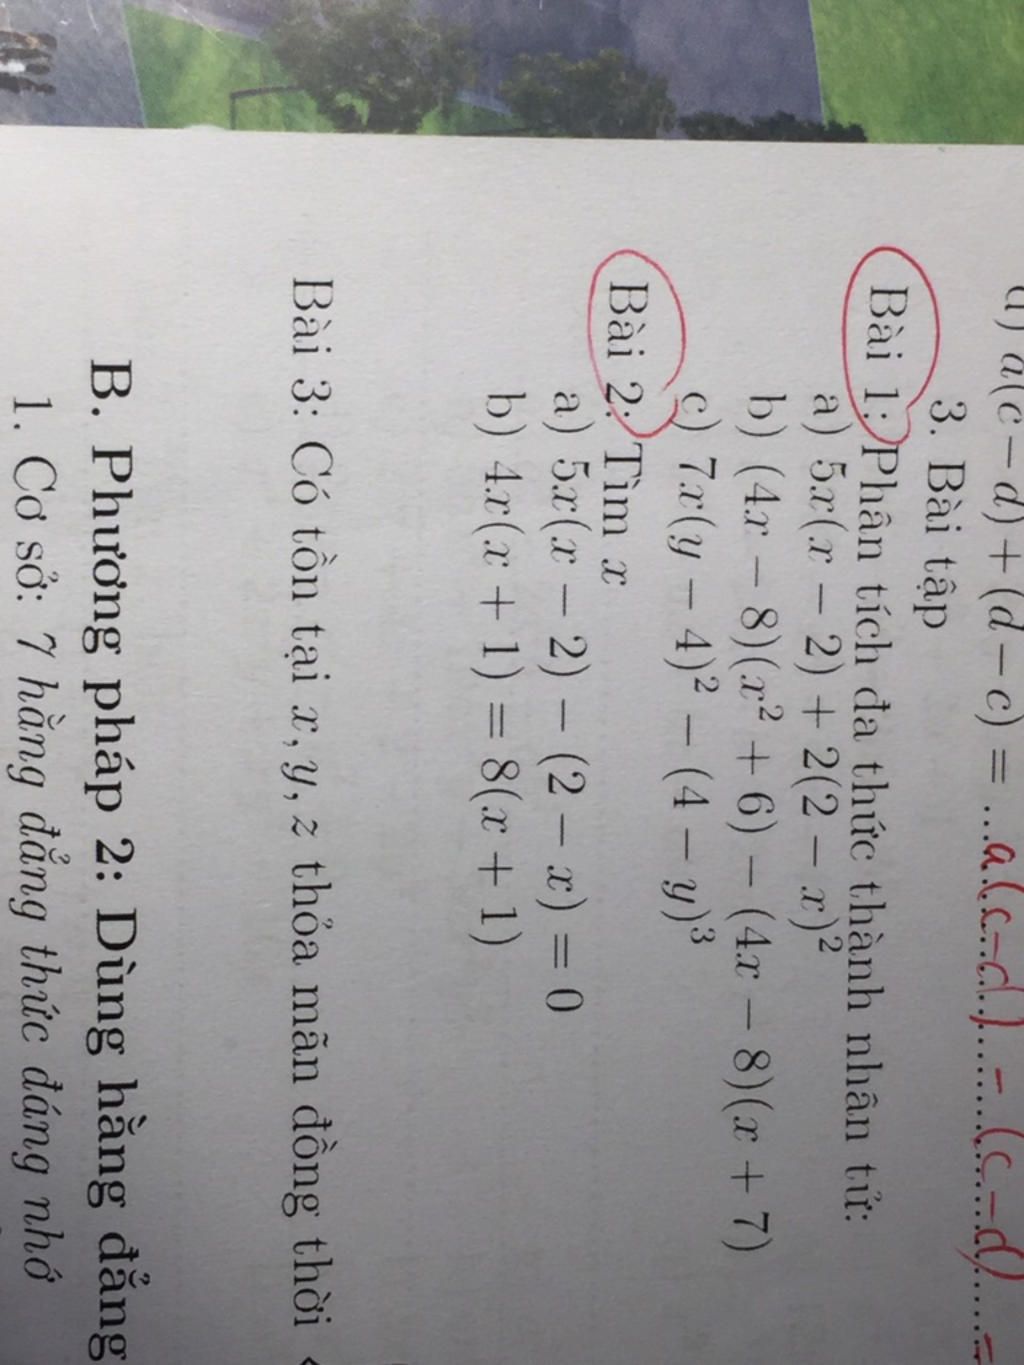 a(c − d) + (d − c) = ...a.(c−d).−.(c−d)....
3. Bài tập
Bài 1: Phân tích đa thức thành nhân tử:
a) 5x(x − 2) + 2(2 − x)²
b) (4x − 8)(x² + 6) − (4x − 8)(x + 7)
c) 7x(y − 4)² − (4 − y)³
Bài 2: Tìm x
a) 5x(x − 2) − (2 − x) = 0
b) 4x(x + 1) = 8(x + 1)
Bài 3: Có tồn tại x, y, z thỏa mãn đồng thời
B. Phương pháp 2: Dùng hằng đẳng
1. Cơ sở: 7 hằng đẳng thức đáng nhớ